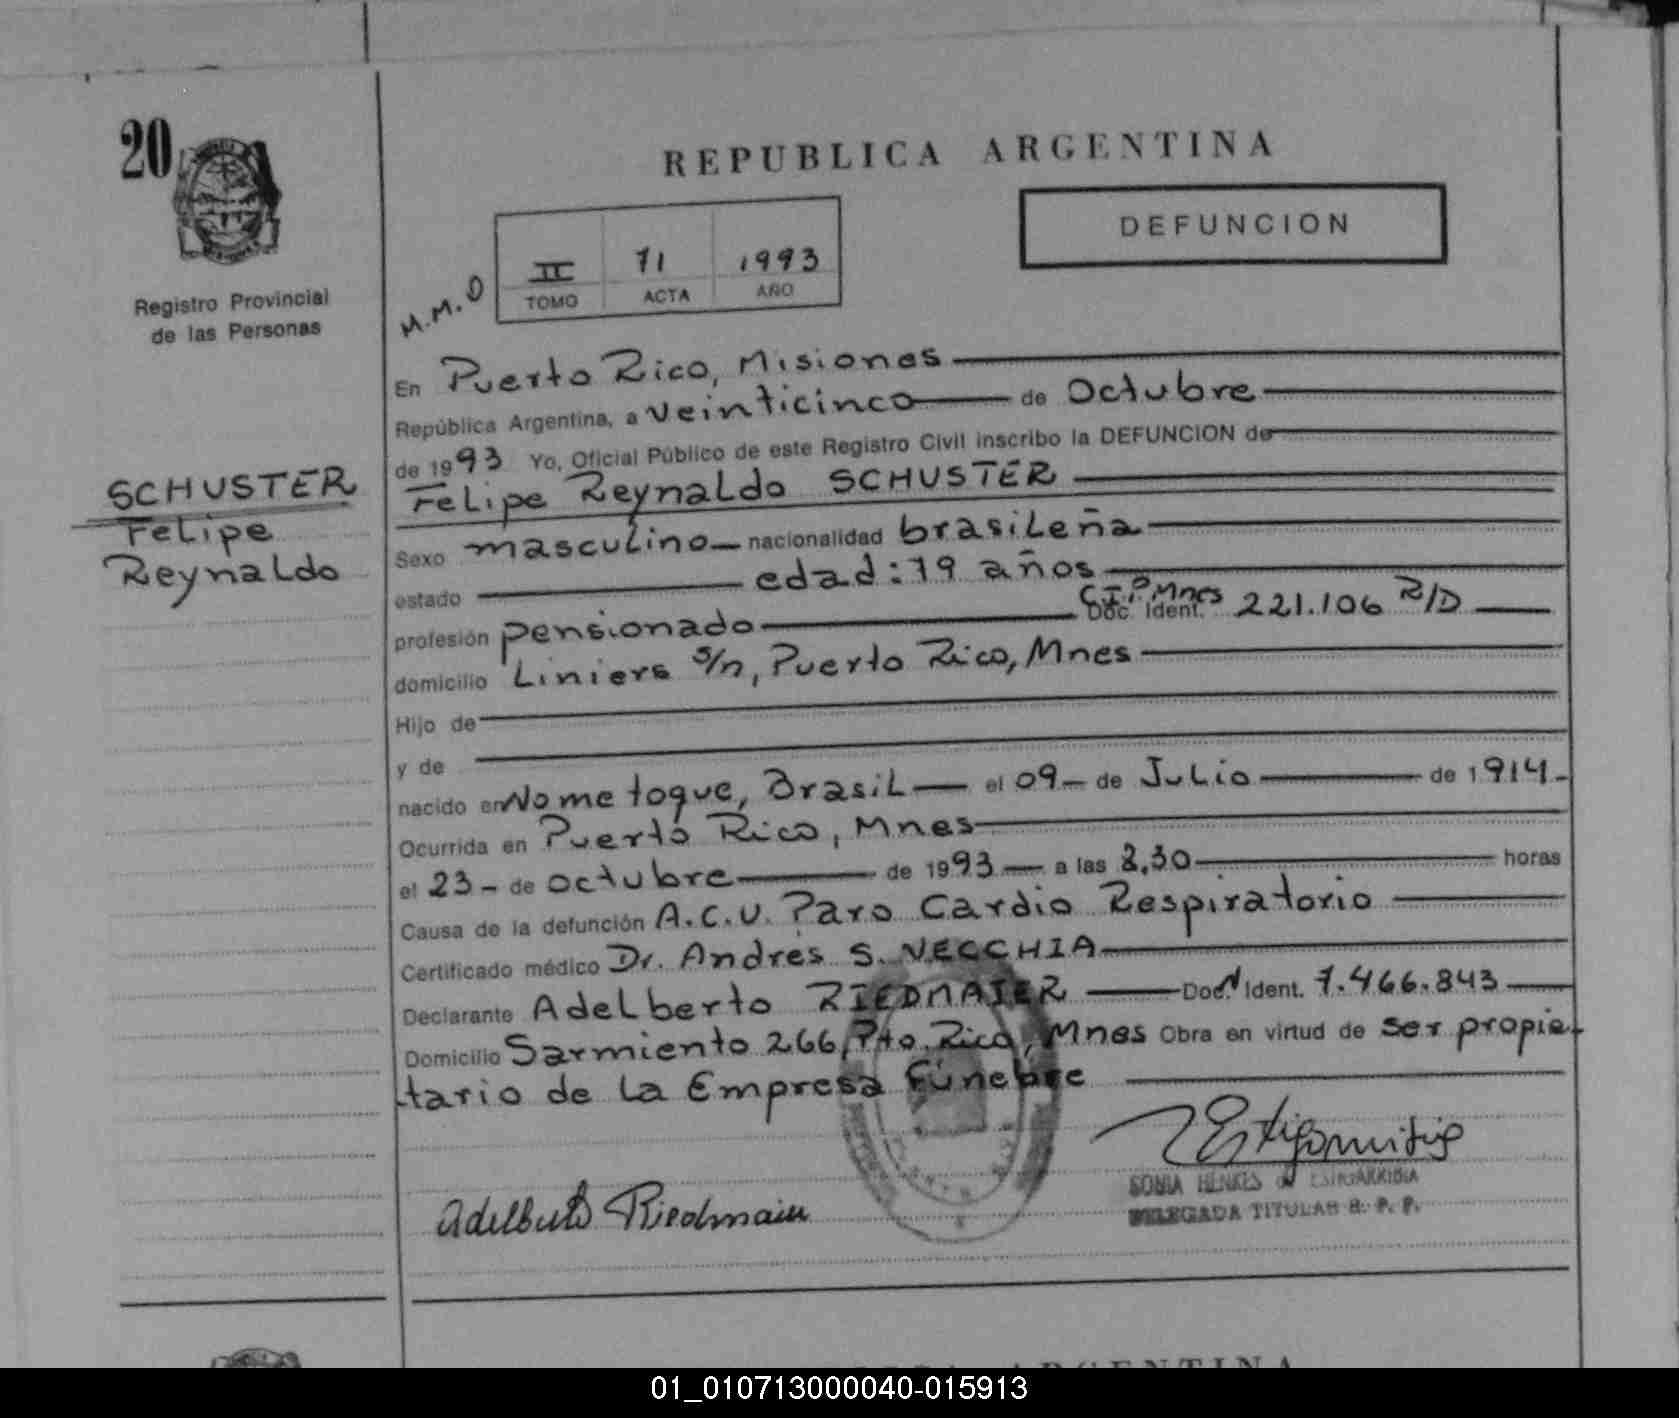 20
Registro Provincial
de las Personas
SCHUSTER
Felipe
Reynaldo
REPUBLICA ARGENTINA
DEFUNCION
II 71 1993
TOMO ACTA AÑO
M.M.D
En Puerto Rico, Misiones
República Argentina, a veinticinco de Octubre
de 1993 Yo, Oficial Público de este Registro Civil inscribo la DEFUNCION de
Felipe Reynaldo SCHUSTER
Sexo masculino nacionalidad brasileña
estado edad: 79 años
profesión pensionado C.I.P. Mnes Doc. Ident. 221.106 R/D
domicilio Liniers s/n, Puerto Rico, Mnes
Hijo de
y de
nacido en Nometoque, Brasil el 09 de Julio de 1914
Ocurrida en Puerto Rico, Mnes
el 23 de octubre de 1993 a las 8,30 horas
Causa de la defunción A.C.V. Paro Cardio Respiratorio
Certificado médico Dr. Andrés S. VECCHIA
Declarante Adelberto RIEDMAIER Doc. Ident. 7.466.843
Domicilio Sarmiento 266, Pto. Rico, Mnes Obra en virtud de ser propie-
tario de la Empresa Fúnebre
Adelberto Riedmaier
SONIA HENKES de ESTIGARRIBIA
DELEGADA TITULAR R. P. P.
ARGENTINA
01_010713000040-015913